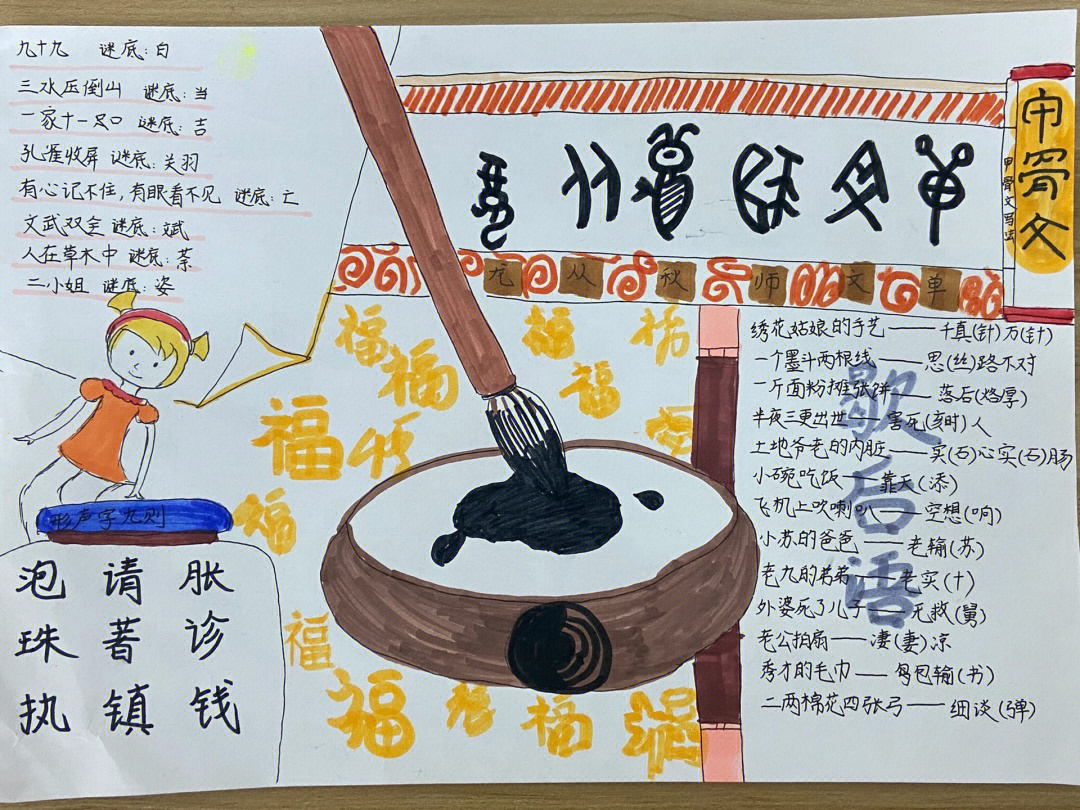 九十九 谜底:白
三水压倒山 谜底:当
一家十一口 谜底:吉
孔雀收屏 谜底:关羽
有心记不住,有眼看不见 谜底:亡
文武双全 谜底:斌
人在草木中 谜底:茶
二小姐 谜底:姿
甲骨文
甲骨文写法
龙 从 秋 师 文 单
福 福 福 福 福 福 福 福 福 福 福
形声字九则
泡 请 胀
珠 著 诊
执 镇 钱
歇后语
绣花姑娘的手艺——千真(针)万(针)
一个墨斗两根线——思(丝)路不对
一斤面粉摊张饼——落后(烙厚)
半夜三更出世——害死(亥时)人
土地爷老的内脏——实(石)心实(石)肠
小碗吃饭——靠天(添)
飞机上吹喇叭——空想(响)
小苏的爸爸——老输(苏)
老九的弟弟——老实(十)
外婆死了儿子——无救(舅)
老公拍扇——凄(妻)凉
秀才的毛巾——包输(书)
二两棉花四张弓——细谈(弹)